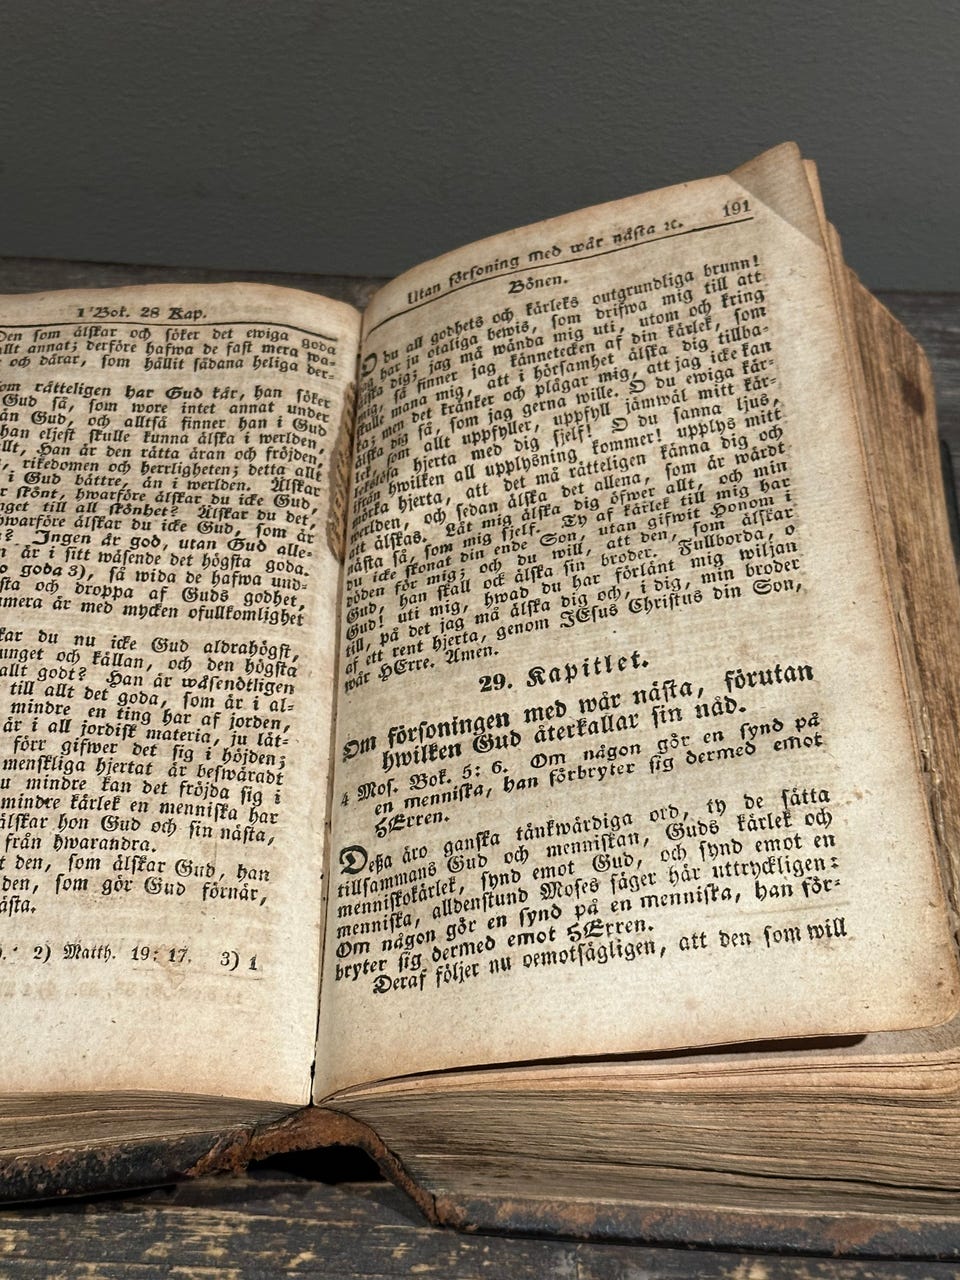 1 Bok. 28 Kap.
Den som älskar och söker det ewiga goda
allt annat; derföre hafwa de fast mera
och dårar, som hållit sådana heliga der-
om rätteligen har Gud kär, han söker
Gud så, som wore intet annat under
än Gud, och alltså finner han i Gud
han eljest skulle kunna älska i werlden,
allt, Han är den rätta äran och fröjden,
, rikedomen och herrligheten; detta allt
i Gud bättre, än i werlden. Älskar
skönt, hwarföre älskar du icke Gud,
till all skönhet? Älskar du det,
hwarföre älskar du icke Gud, som är
? Ingen är god, utan Gud alle-
är i sitt wäsende det högsta goda.
goda 3), så wida de hafwa und-
och droppa af Guds godhet,
är med mycken ofullkomlighet
du nu icke Gud aldrahögst,
och källan, och den högsta
allt godt? Han är wäsendtligen
till allt det goda, som är i al-
mindre en ting har af jorden,
är i all jordisk materia, ju lät-
förr gifwer det sig i höjden;
menskliga hjertat är beswäradt
mindre kan det fröjda sig i
mindre kärlek en menniska har
älskar hon Gud och sin nästa,
från hwarandra.
den, som älskar Gud, han
den, som gör Gud förnär,

2) Matth. 19: 17. 3) 1
Utan försoning med wår nästa ꝛc. 191
Bönen.
O du all godhets och kärleks outgrundliga brunn!
har ju otaliga bewis, som drifwa mig till att
dig; jag må wända mig uti, utom och kring
mig, så finner jag kännetecken af din kärlek, som
skulle mana mig, att i hörsamhet älska dig tillba-
ka; men det kränker och plågar mig, att jag icke kan
älska dig så, som jag gerna wille. O du ewiga kär-
lek, som allt uppfyller, uppfyll jämwäl mitt kär-
lekslösa hjerta med dig sjelf! O du sanna ljus,
ifrån hwilken all upplysning kommer! upplys mitt
mörka hjerta, att det må rätteligen känna dig och
werlden, och sedan älska det allena, som är wärdt
att älskas. Låt mig älska dig öfwer allt, och min
nästa så, som mig sjelf. Ty af kärlek till mig har
du icke skonat din ende Son, utan gifwit Honom i
döden för mig; och du will, att den, som älskar
Gud, han skall ock älska sin broder. Fullborda, o
Gud! uti mig, hwad du har förlänt mig wiljan
till, på det jag må älska dig och, i dig, min broder
af ett rent hjerta, genom JEsus Christus din Son,
wår HErre. Amen.
29. Kapitlet.
Om försoningen med wår nästa, förutan
hwilken Gud återkallar sin nåd.
4 Mos. Bok. 5: 6. Om någon gör en synd på
en menniska, han förbryter sig dermed emot
HErren.
Deßa äro ganska tänkwärdiga ord, ty de sätta
tillsammans Gud och menniskan, Guds kärlek och
menniskokärlek, synd emot Gud, och synd emot en
menniska, alldenstund Moses säger här uttryckligen:
Om någon gör en synd på en menniska, han för-
bryter sig dermed emot HErren.
Deraf följer nu oemotsägligen, att den som will